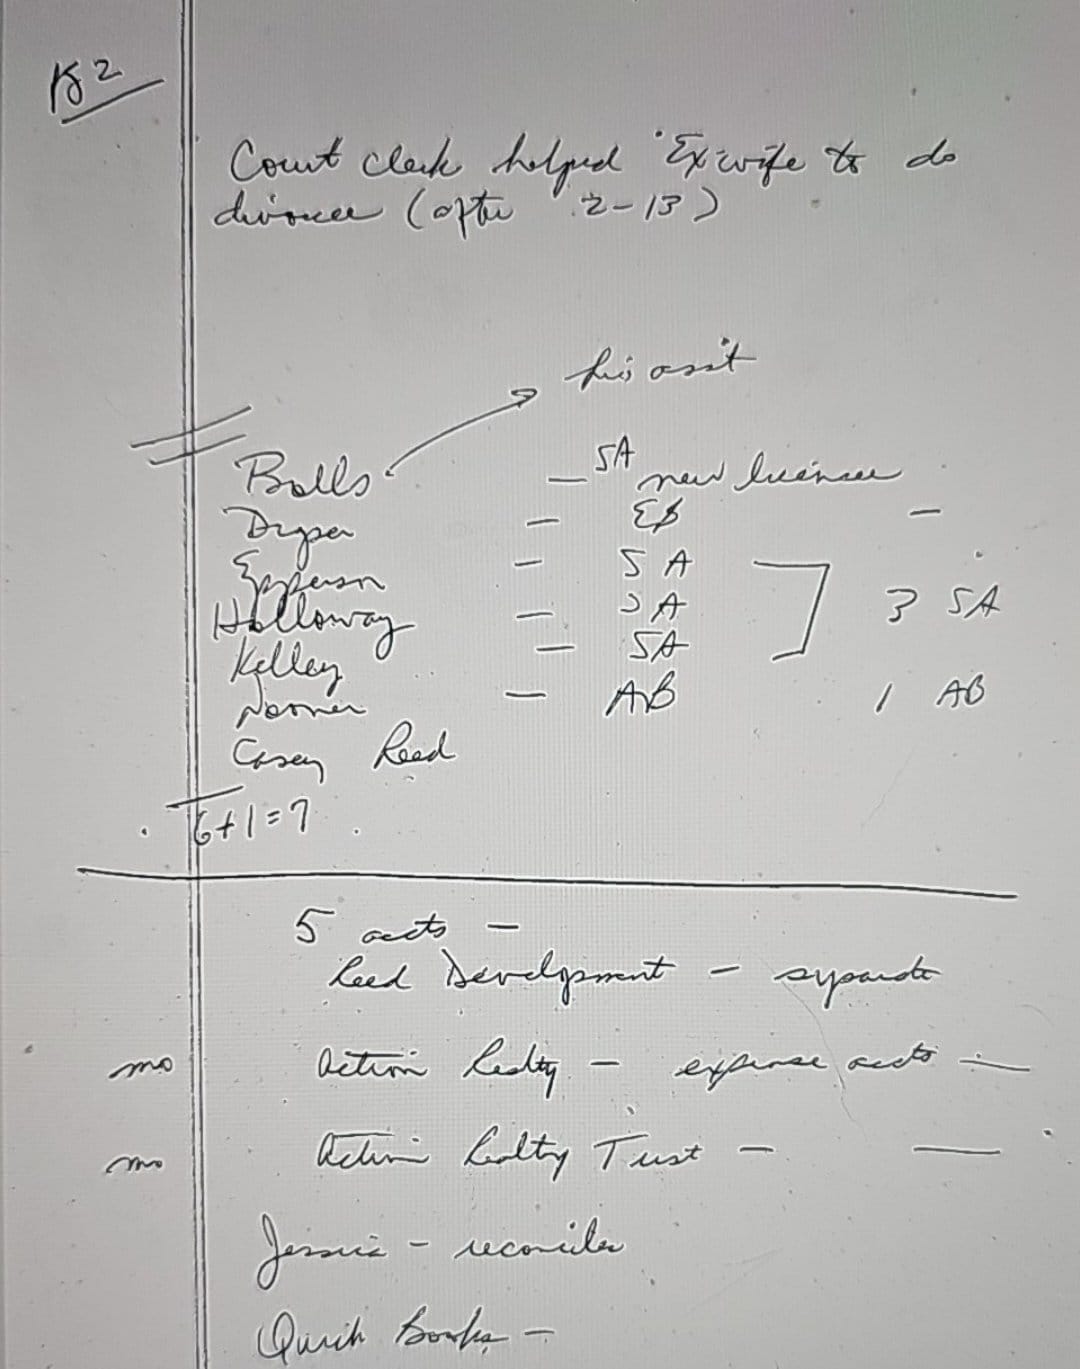 Pg 2
Court clerk helped Ex-wife to do
divorce (after 2-13)
his asst
Bolls - SA new licensee
Dryer - EB -
Epperson - SA
Holloway - SA ] 3 SA
Kelley - SA
- AB 1 AB
Casey Reed
6+1=7
5 accts -
Reed Development - separate
mo Action Realty - expense accts -
mo Action Realty Trust - -
Jessica - reconciles
Quick Books -